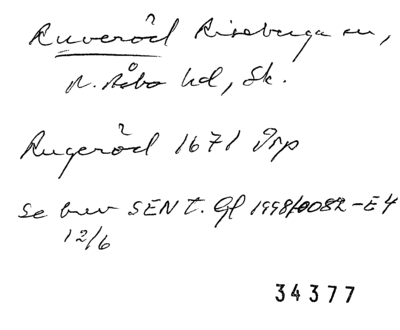 Ruveröd Riseberga sn,
N. Åsbo hd, Sk.
Rugeröd 1671 Jrp
Se brev SEN t. Gf 1998/0082-E4
12/6
34377